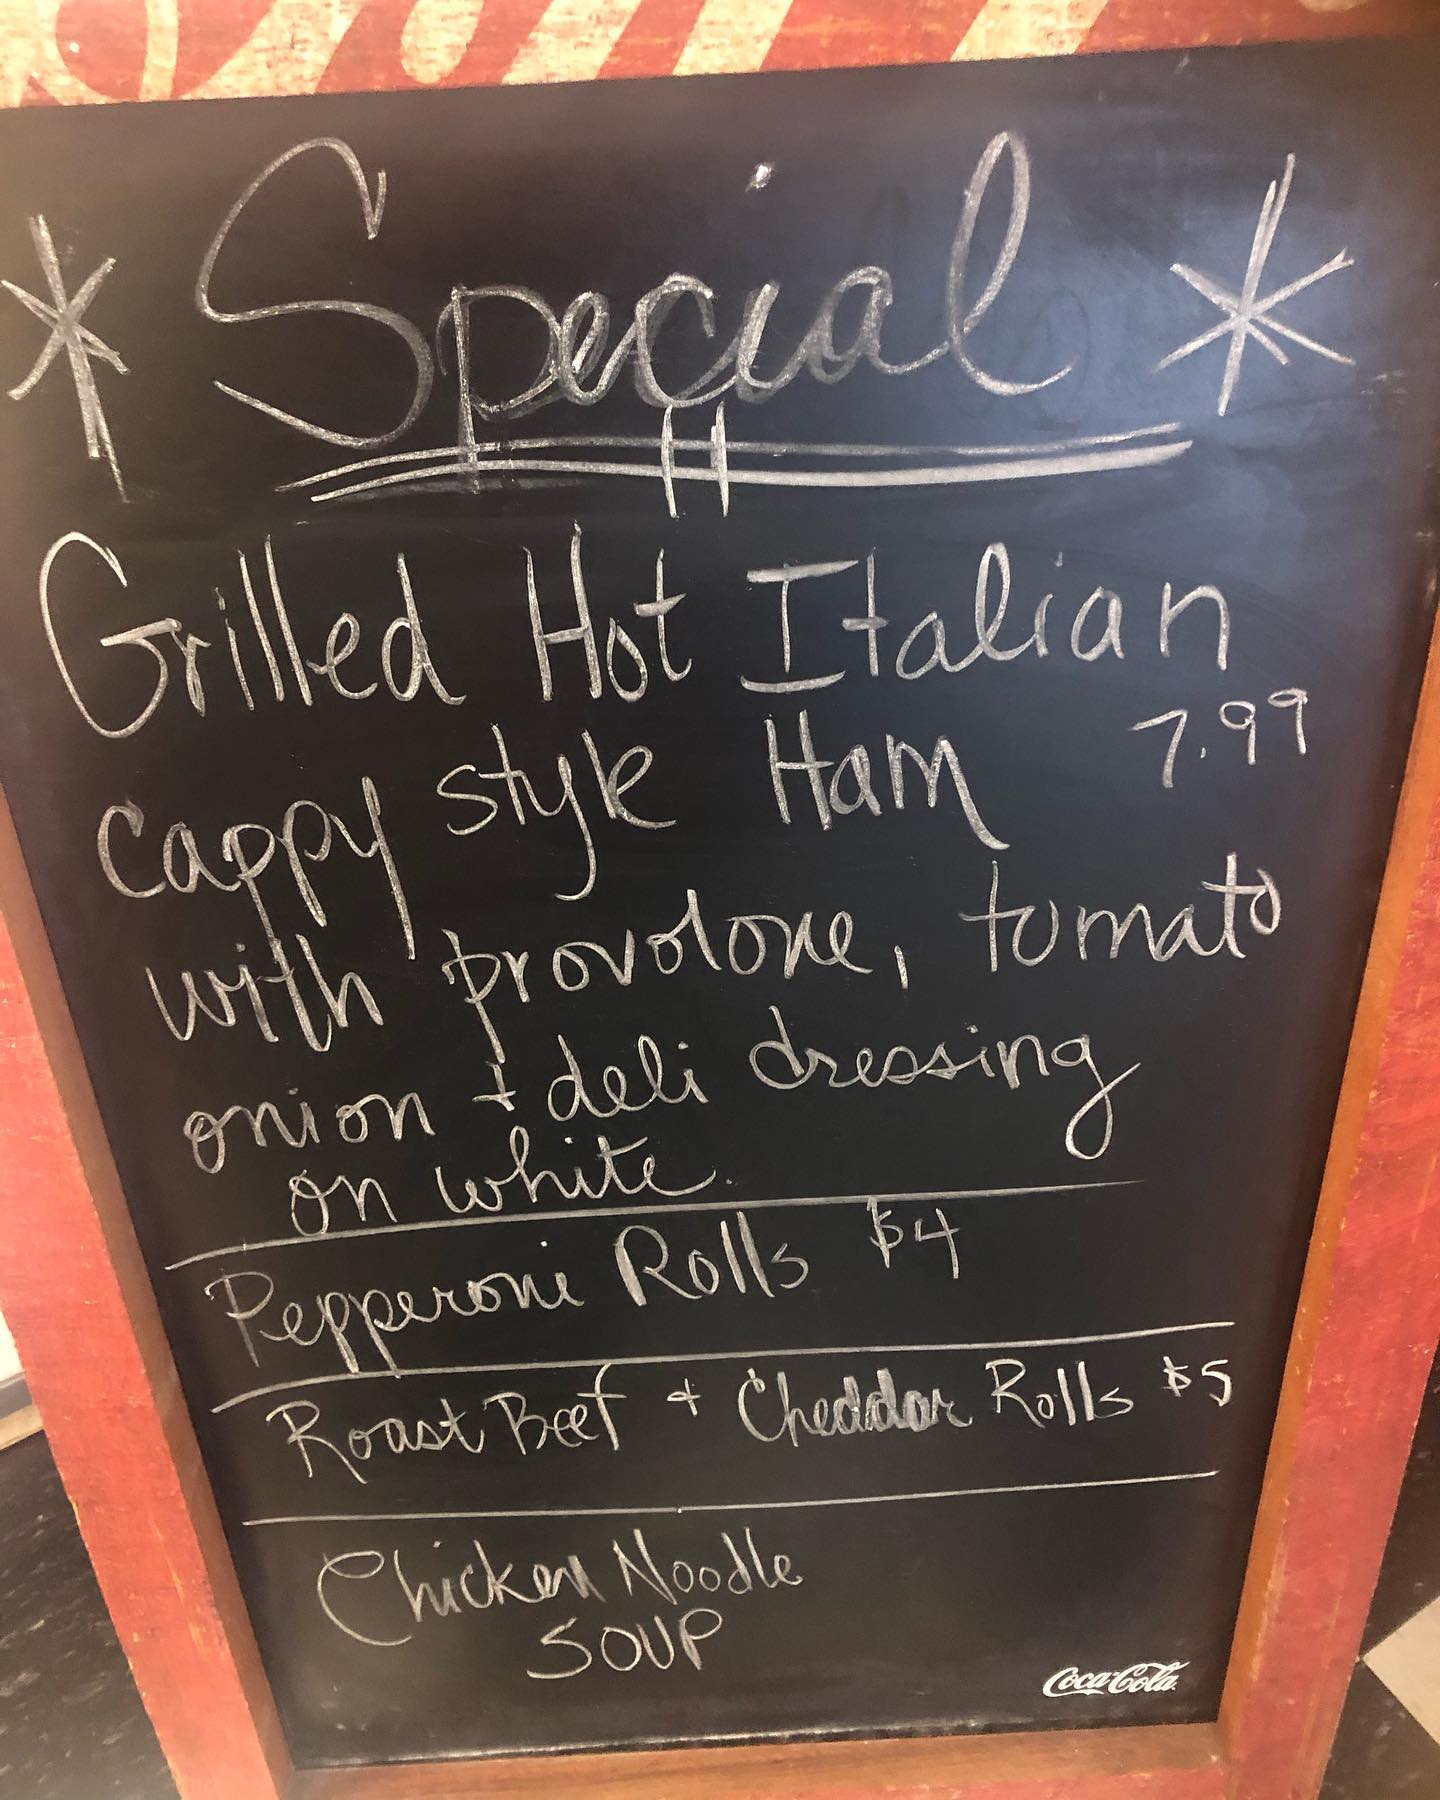 * Special *
Grilled Hot Italian
cappy style Ham 7.99
with provolone, tomato
onion + deli dressing
on white.
Pepperoni Rolls $4
Roast Beef + Cheddar Rolls $5
Chicken Noodle
SOUP
Coca-Cola